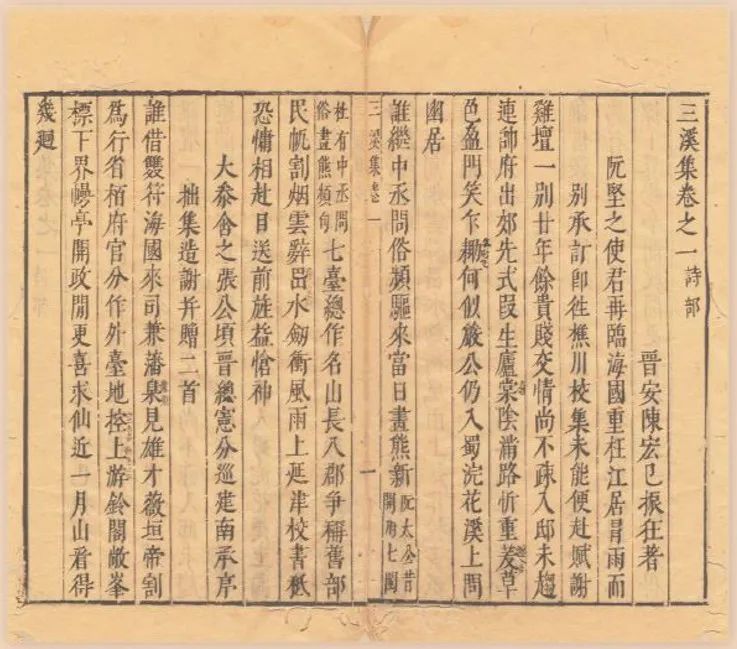 三溪集卷之一 詩部
晉安陳宏已振狂著
阮堅之使君再臨海國重枉江居冒雨而
別承訂卽徃樵川校集未能便赴賦謝
雞壇一別廿年餘貴賤交情尚不疎入邸未趨
連帥府出郊先式叚生廬棠陰滿路忻重茇草
色盈門笑乍鋤何似嚴公仍入蜀浣花溪上問
幽居
誰繼中丞問俗頻驅來當日畫熊新 阮太公昔開府七閩
三溪集卷一 一
杜有中丞問俗畫熊頻句 七臺總作名山長八郡爭稱舊部
民帆割烟雲辭峀水劒衝風雨上延津校書秪
恐慵相赴目送前旌益愴神
大叅舍之張公頃晉總憲分巡建南承序
拙集造謝并贈二首
誰借雙符海國來司兼藩臬見雄才薇垣帝割
爲行省栢府官分作外臺地控上游鈴閣敞峯
標下界幔亭開政閒更喜求仙近一月山看得
幾廻